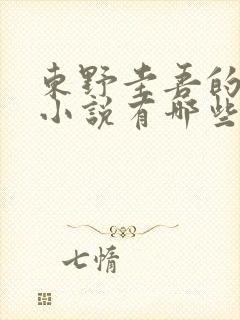 東野圭吾的
小說有哪些
七惰